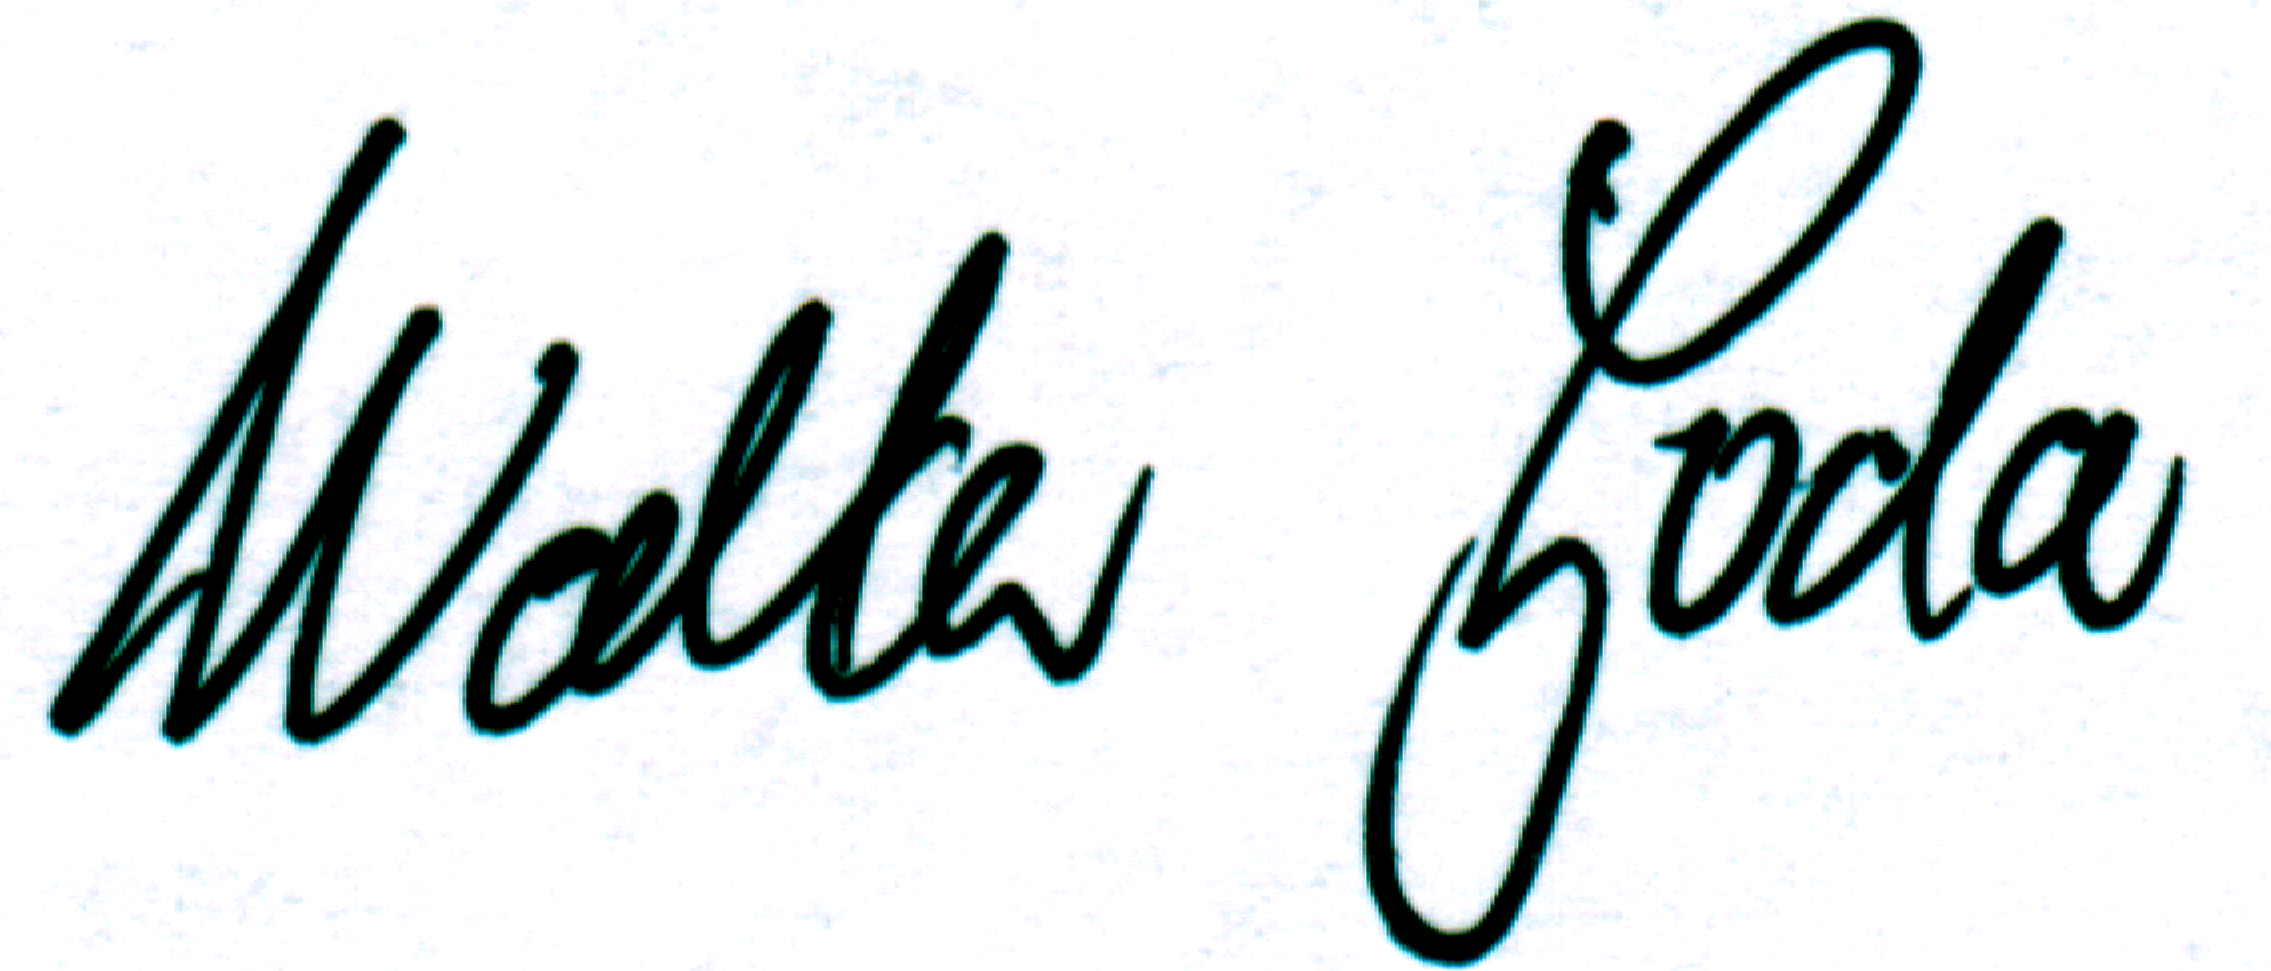 Walter Zoda